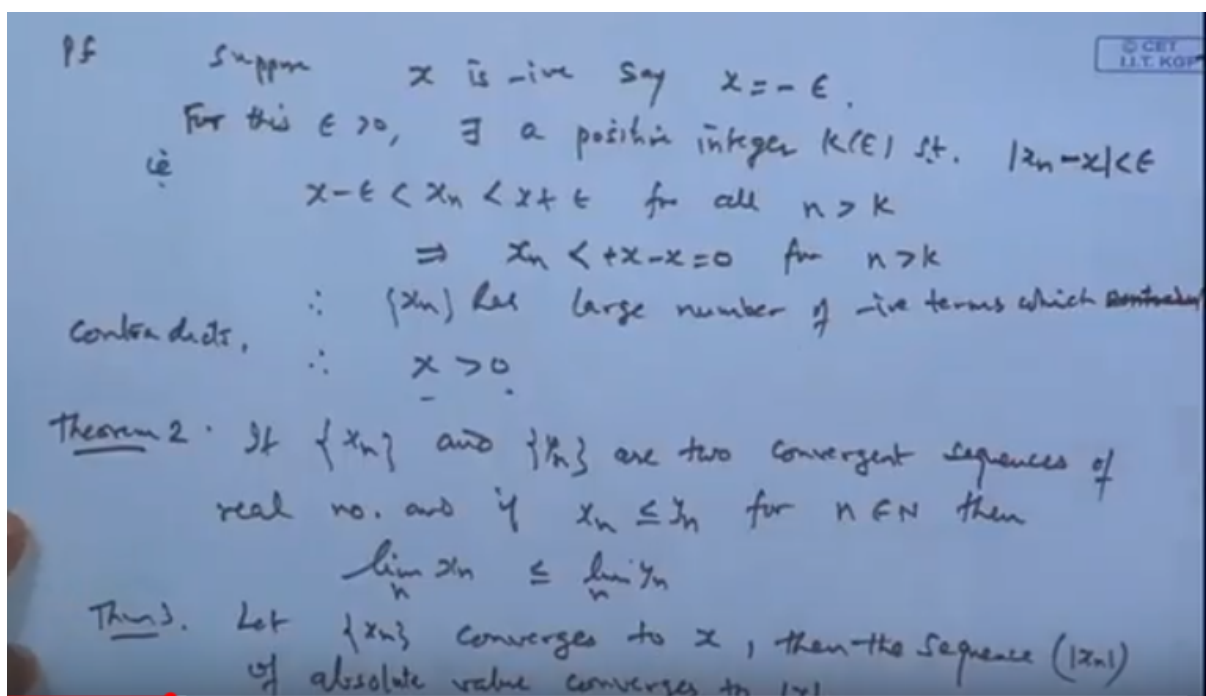 Pf Suppose x is -ive say x = - ϵ.
© CET
I.I.T. KGP
For this ϵ >0, ∃ a positive integer K(ϵ) s.t. |xn - x| < ϵ
ie
x-ϵ < xn < x+ ϵ for all n > K
⇒ xn < +x-x=0 for n >k
∴ {xn} has large number of -ive terms which
contradicts.
∴ x >0.
Theorem 2. If {xn} and {yn} are two convergent sequences of
real no. and if xn ≤ yn for n ∈ N then
lim xn ≤ lim yn
n n
Thm 3. Let {xn} converges to x, then the sequence (|xn|)
of absolute value converges to |x|